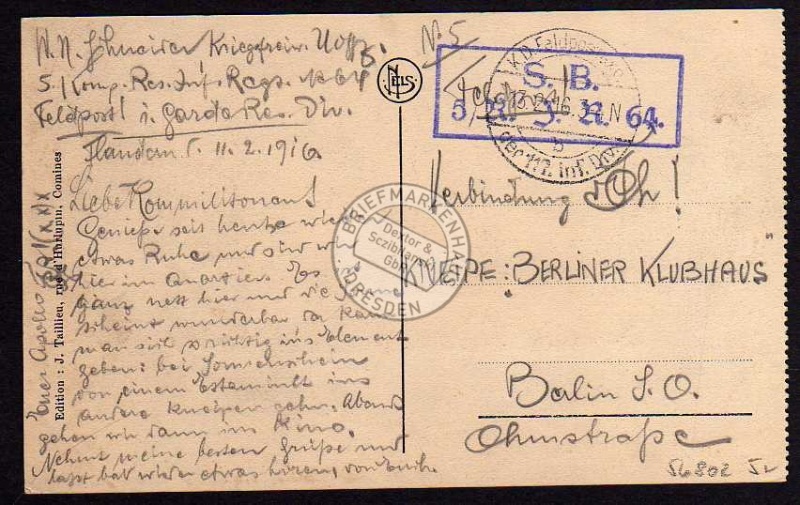 W. N. Schneider Kriegsfreiw. Uoffz.
5./Komp. Res. Inf. Regt. No 64
Feldpost 1. Garde Res. Div.
Flandern d. 11.2.1916
Liebe Kommilitonen!
Geniesse seit heute wieder
etwas Ruhe und sind wir
hier im Quartier. Es
ganz nett hier und die
scheint wunderbar da kann
man sich richtig ins Element
geben: bei Sonnenschein
von einem Estaminet ins
andere kneipen gehn. Abends
gehen wir dann ins Kino.
Nehmt meine besten Grüße und
laßt bald wieder etwas hören, von Euch.
Euer
Edition : J. Taillieu, rue d'Hurlupin, Comines
NELS
BRIEFMARKENHAUS
Dextor &
GbR
DRESDEN
No 5
K.D. Feldpostexp.
S. B.
5/R. J. R. 64.
13.2.16. N
b
der 117. Inf. Div.
Verbindung
KNEIPE: BERLINER KLUBHAUS
Berlin S.O.
Ohmstraße
56802